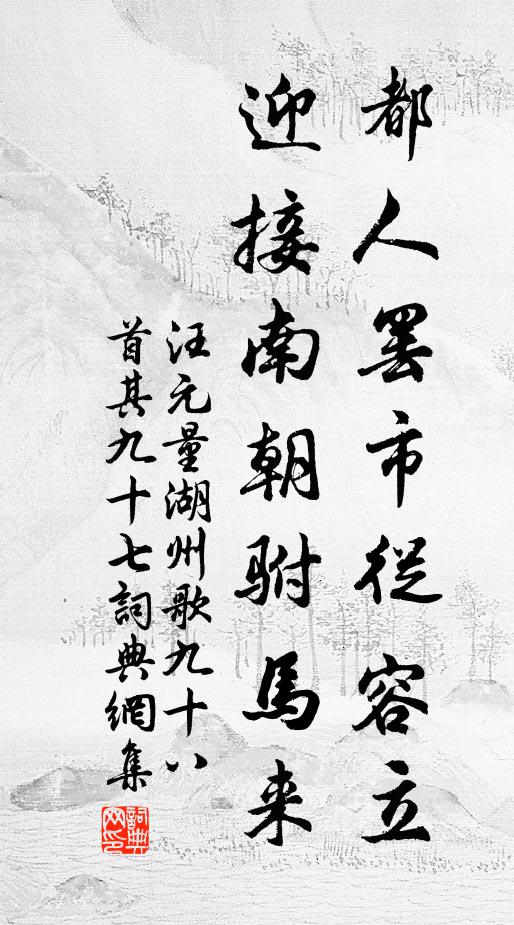 都人罢市從容立
迎接南朝駙馬来
汪元量湖州歌九十八
首其九十七詞典網集
詞典網印